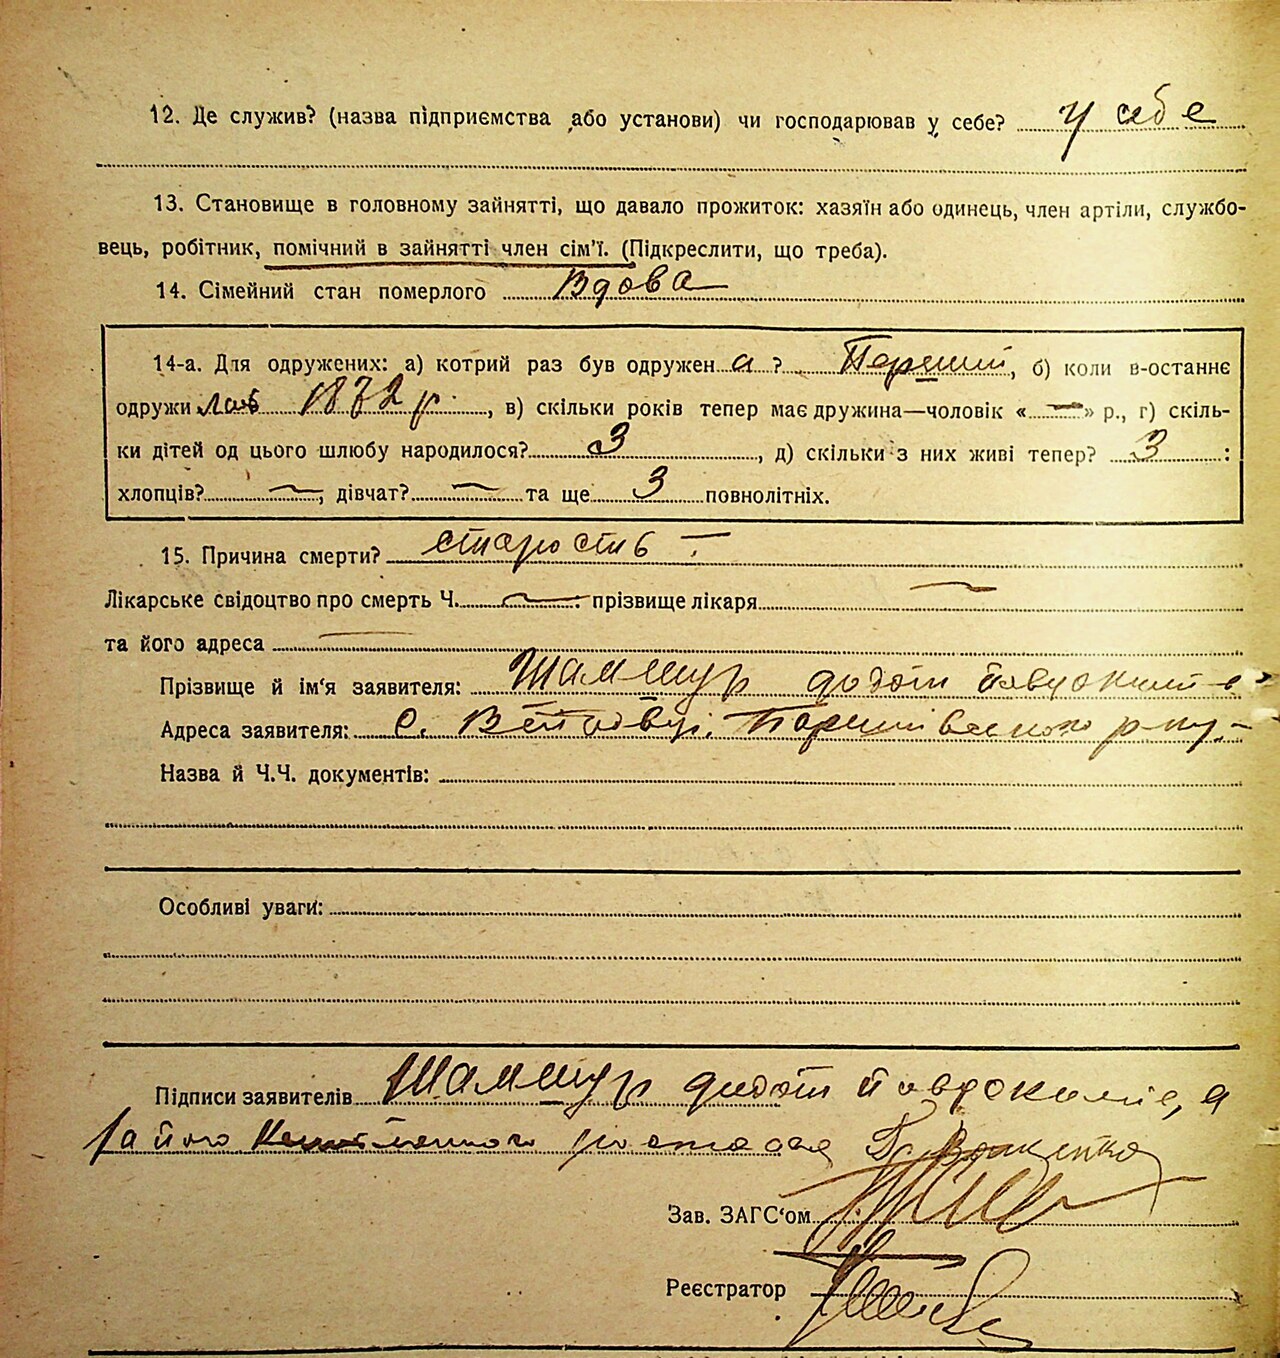 12. Де служив? (назва підприємства або установи) чи господарював у себе? у себе
13. Становище в головному зайнятті, що давало прожиток: хазяїн або одинець, член артіли, службо-
вець, робітник, помічний в зайнятті член сім'ї. (Підкреслити, що треба).
14. Сімейний стан померлого Вдова
14-а. Для одружених: а) котрий раз був одружен а ? Перший, б) коли в-останнє
одружи лась 1872 р., в) скільки років тепер має дружина—чоловік « — » р., г) скіль-
ки дітей од цього шлюбу народилося? 3, д) скільки з них живі тепер? 3 :
хлопців? —, дівчат? — та ще 3 повнолітніх.
15. Причина смерти? старость
Лікарське свідоцтво про смерть Ч. — прізвище лікаря —
та його адреса —
Прізвище й ім'я заявителя: Шамшур
Адреса заявителя: с.
Назва й Ч.Ч. документів:
Особливі уваги:
Підписи заявителів Шамшур
Зав. ЗАГС'ом
Реєстратор